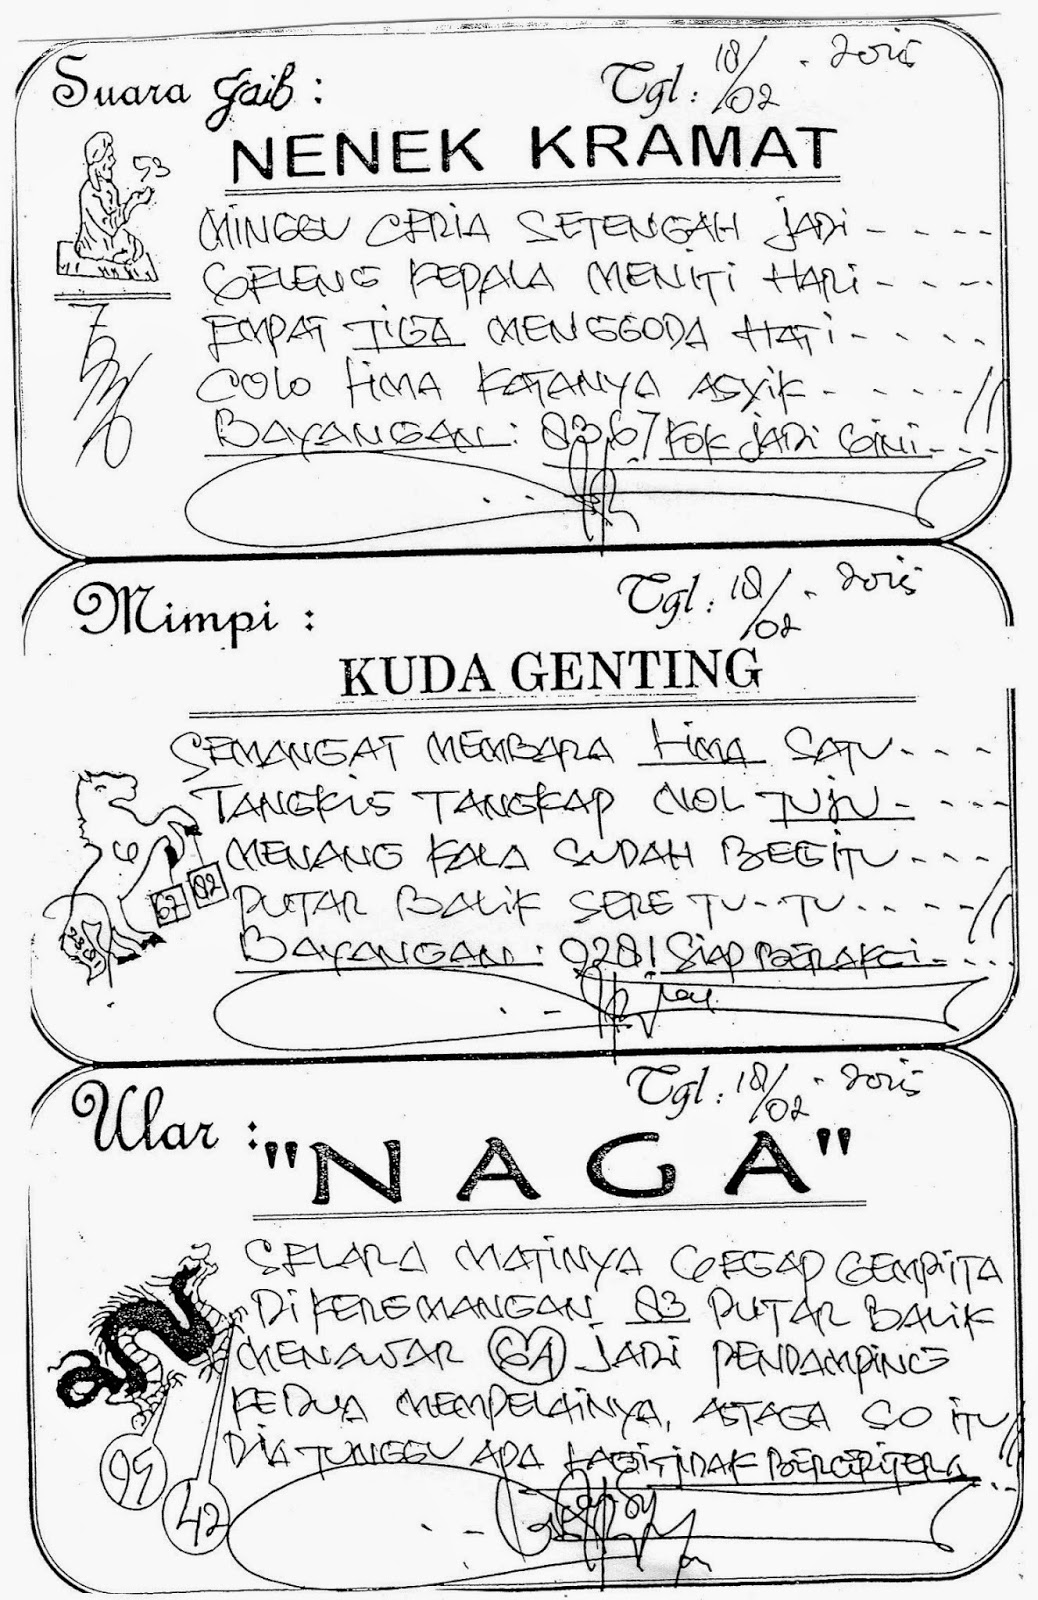 Suara Gaib :
Tgl : 18/02 - 2015
NENEK KRAMAT
MINGGU CERIA SETENGAH JADI - - - -
GELENG KEPALA MENITI HARI - - - -
EMPAT TIGA MENGGODA HATI - - - -
COLO LIMA KATANYA ASYIK - - - -
BAYANGAN : 8367 KOK JADI GINI - - -
Mimpi :
Tgl : 18/02 - 2015
KUDA GENTING
SEMANGAT MEMBARA LIMA SATU - - -
TANGKIS TANGKAP NOL TUJU - - - -
6
MENANG KALA SUDAH BEGITU - - - -
67 82
PUTAR BALIK SERE TU - TU - - - -
BAYANGAN : 0281 SIAP BERAKSI - - -
Ular :
Tgl : 18/02 - 2015
"NAGA"
SELARA MATINYA GEGAP GEMPITA
DIKEREMANGAN 83 PUTAR BALIK
MENAWAR JADI PENDAMPING
KEDUA MEMPELAINYA, ASTAGA SO ITU
DIA TUNGGU APA LAGI TIDAK BERCERITERA
95
42